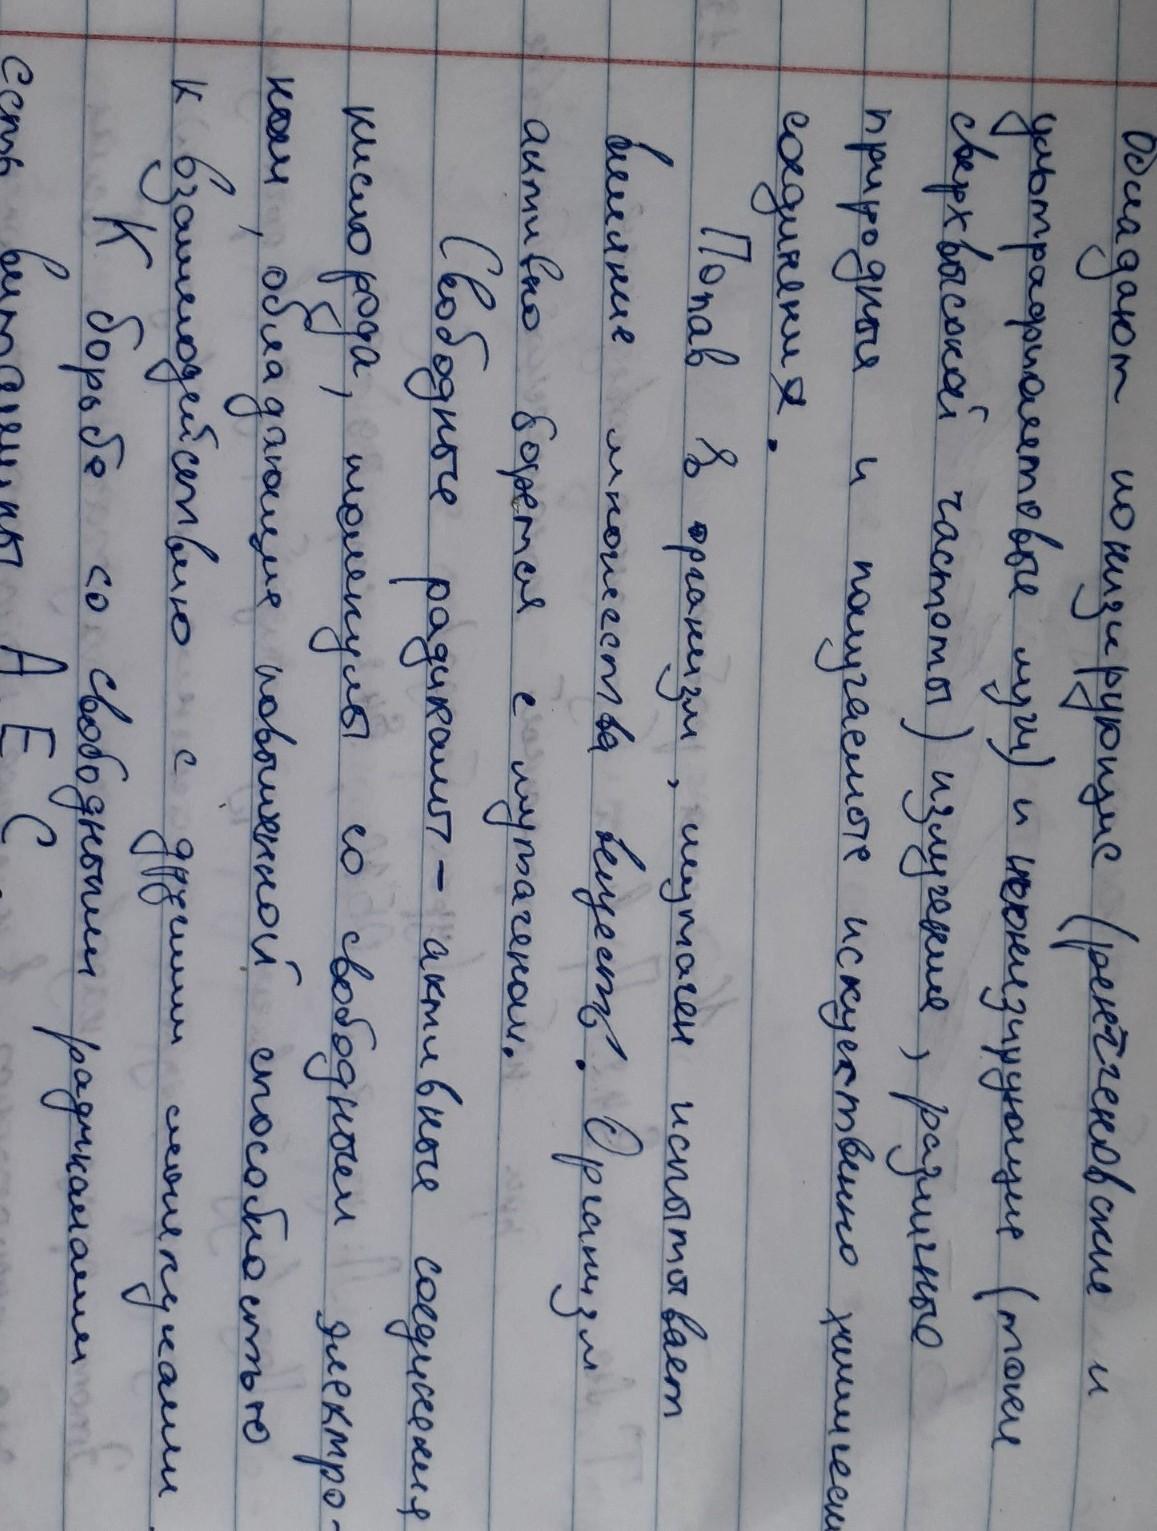 Обладают ионизирующие (рентгеновские и
ультрафиолетовые лучи) и неионизирующие (токи
сверхвысокой частоты) излучения, различные
природные и получаемые искуственно химически
соединения.
Попав в организм, мутаген испытывает
влияние множества веществ. Организм
активно борется с мутагеном.
Свободные радикалы - активные соединения
кислорода, молекулы со свободным электро-
ном, обладающие повышенной способностью
к взаимодействию с другими молекулами
К борьбе со свободными радикалами
есть витамины А Е С